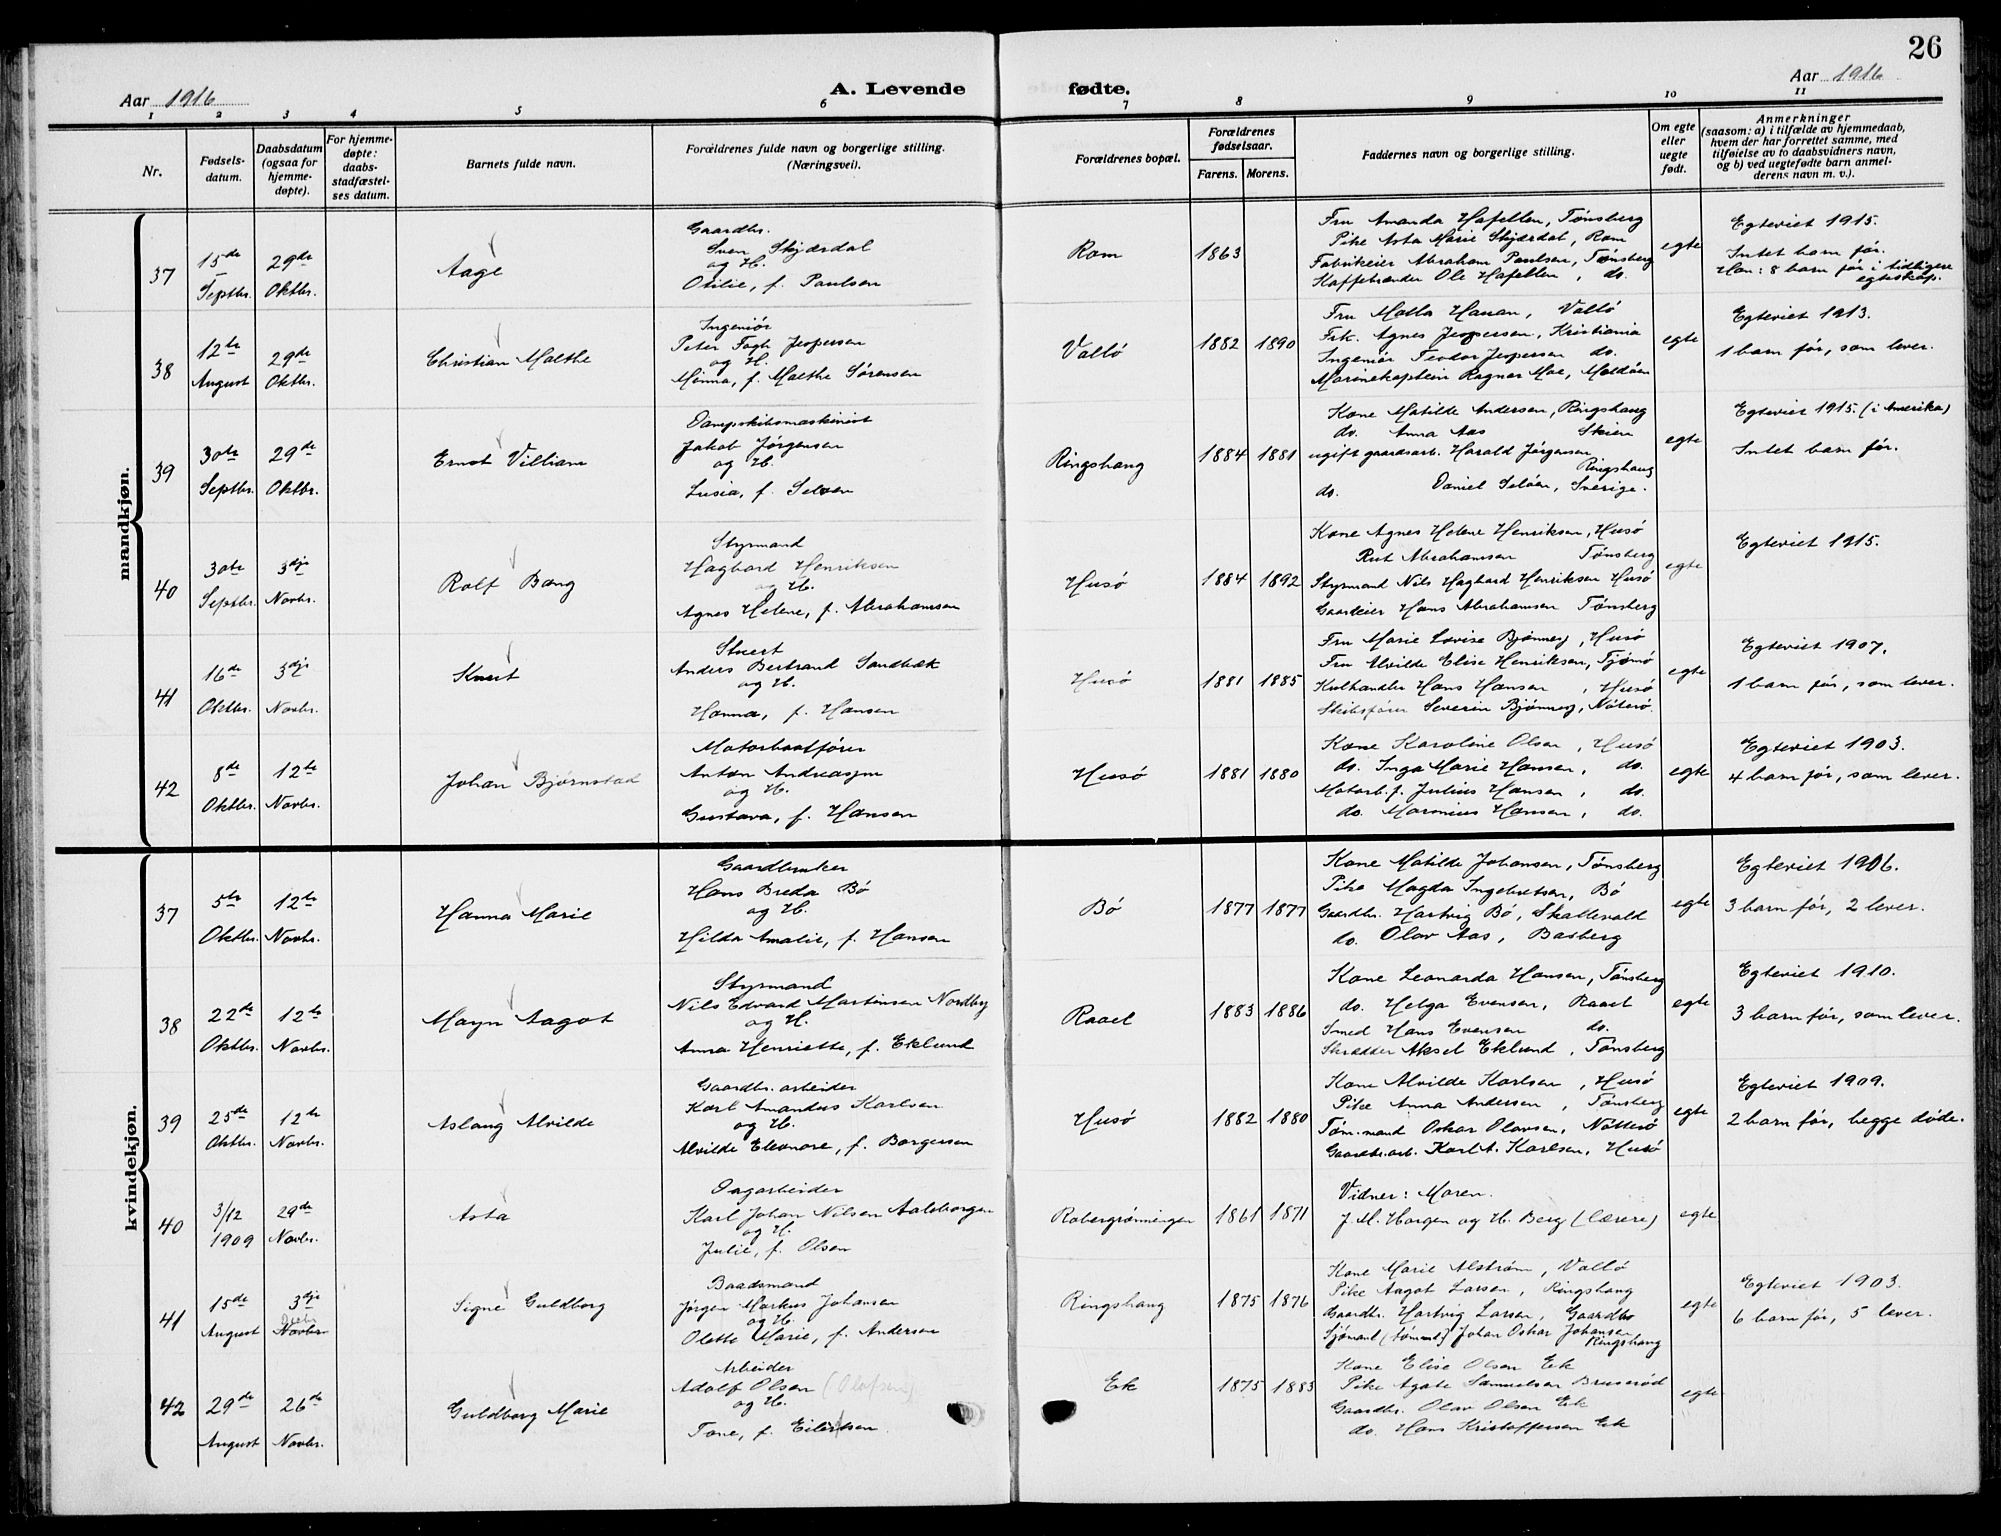 26
Aar 1916
A. Levende
fødte.
Aar 1916
1 2 3 4 5 6 7 8 9 10 11
Nr.
Fødsels-
datum.
Daabsdatum
(ogsaa for
hjemme-
døpte).
For hjemme-
døpte:
daabs-
stadfæstel-
ses datum.
Barnets fulde navn.
Forældrenes fulde navn og borgerlige stilling.
(Næringsvei).
Forældrenes bopæl.
Forældrenes
fødselsaar.
Farens. Morens.
Faddernes navn og borgerlige stilling.
Om egte
eller
uegte
født.
Anmerkninger
(saasom: a) i tilfælde av hjemmedaab,
hvem der har forrettet samme, med
tilføielse av to daabsvidners navn,
og b) ved uegtefødte barn anmel-
derens navn m. v.).
mandkjøn.
37
15de
Septbr.
29de
Oktbr.
Aage
Gaardbr.
Sven Skjærdal
og H.
Otilie, f. Paulsen
Rom
1863
Fru Amanda Hafellen, Tønsberg
Pike Asta Marie Skjærdal, Rom
Fabrikeier Abraham Paulsen, Tønsberg
Kaffebrænder Ole Hafellen, do.
egte
Egteviet 1915.
Intet barn før.
Han: 8 barn før i tidligere
egteskap.
38
12te
August
29de
Oktbr.
Christian Malthe
Ingeniør
Peter Fogh Jespersen
og H.
Minna, f. Malthe Sørensen
Vallø
1882 1890
Fru Malla Hansen, Vallø
Frk. Agnes Jespersen, Kristiania
Ingeniør Teodor Jespersen do.
Marinekaptein Ragnar Moe,
egte
Egteviet 1913.
1 barn før, som lever.
39
30te
Septbr.
29de
Oktbr.
Ernst Villiam
Dampskibsmaskinist
Jakob Jørgensen
og H.
Lusia, f. Seløen
Ringshaug
1884 1881
Kone Matilde Andersen, Ringshaug
do. Anna Aas Skien
ugift gaardsarb. Harald Jørgensen
Ringshaug
do. Daniel Seløen, Sverige.
egte
Egteviet 1915. (i Amerika)
Intet barn før.
40
30te
Septbr.
3dje
Novbr.
Rolf Bang
Styrmand
Hagbard Henriksen
og H.
Agnes Helene, f. Abrahamsen
Husø
1884 1892
Kone Agnes Helene Henriksen, Husø
Rut Abrahamsen Tønsberg
Styrmand Nils Hagbard Henriksen Husø
Gaardeier Hans Abrahamsen Tønsberg
egte
Egteviet 1915.
41
16de
Oktbr.
3dje
Novbr.
Knut
Stuert
Anders Bertrand Sandbæk
og H.
Hanna, f. Hansen
Husø
1881 1885
Fru Marie Lovise Bjønnes, Husø
Fru Alvilde Elise Henriksen, Tjømø
Kulhandler Hans Hansen, Husø
Skibsfører Severin Bjønnes, Nøterø.
egte
Egteviet 1907.
1 barn før, som lever.
42
8de
Oktbr.
12te
Novbr.
Johan Bjørnstad
Motorbaatfører
Anton Andreasen
og H.
Gustava, f. Hansen
Husø
1881 1880
Kone Karoline Olsen, Husø
do. Inga Marie Hansen, do.
Motorb.f. Julius Hansen, do.
do. Marinius Hansen, do.
egte
Egteviet 1903.
4 barn før, som lever.
kvindekjøn.
37
5te
Oktbr.
12te
Novbr.
Hanna Marie
Gaardbruker
Hans Breda Bø
og H.
Hilda Amalie, f. Hansen
Bø
1877 1877
Kone Matilde Johansen, Tønsberg
Pike Magda Ingebretsen, Bø
Gaardbr. Hartvig Bø, Skallevald
do. Olav Aas, Basberg
egte
Egteviet 1906.
3 barn før, 2 lever.
38
22de
Oktbr.
12te
Novbr.
Mayn Aagot
Styrmand
Nils Edvard Martinsen Nordby
og H.
Anna Henriette, f. Eklund
Raael
1883 1886
Kone Leonarda Hansen, Tønsberg
do. Helga Evensen, Raael
Smed Hans Evensen do.
Skrædder Aksel Eklund, Tønsberg
egte
Egteviet 1910.
3 barn før, som lever.
39
25de
Oktbr.
12te
Novbr.
Aslaug Alvilde
Gaardbr. arbeider
Karl Amandus Karlsen
og H.
Alvilde Eleonore, f. Borgersen
Husø
1882 1880
Kone Alvilde Karlsen, Husø
Pike Anna Andersen, Tønsberg
Tøm.mand Oskar Olavsen, Nøtterø
Gaardbr.arb. Karl A. Karlsen, Husø
egte
Egteviet 1909.
2 barn før, begge døde.
40
3/12
1909
29de
Novbr.
Asta
Dagarbeider
Karl Johan Nilsen Aalborgen
og H.
Julie, f. Olsen
Robergrønningen
1861 1871
Vidner: Moren.
J. M. Horgen og H. Berg (lærere)
egte
41
15de
August
3dje
Decbr
Novbr.
Signe Guldborg
Baadsmand
Jørgen Markus Johansen
og H.
Olette Marie, f. Andersen
Ringshaug
1875 1876
Kone Marie Alstrøm, Vallø
Pike Aagot Larsen, Ringshaug
Gaardbr. Hartvig Larsen, Gaardbo
Sjømand (tømmerm) Johan Oskar Johansen
Ringshaug
egte
Egteviet 1903.
6 barn før, 5 lever.
42
29de
August
26de
Novbr.
Guldborg Marie
Arbeider
Adolf Olsen (Olafsen)
og H.
Tone, f. Eilertsen
Ek
1875 1883
Kone Elise Olsen Ek
Pike Agate Samuelsen Bruserød
Gaardbr. Olav Olsen Ek
do. Hans Kristoffersen Ek
egte